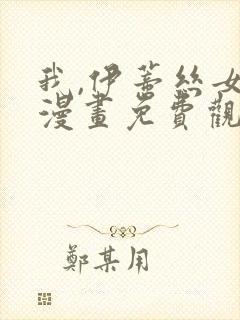 我,伊蒂絲女
漫畫免費觀
鄭某用